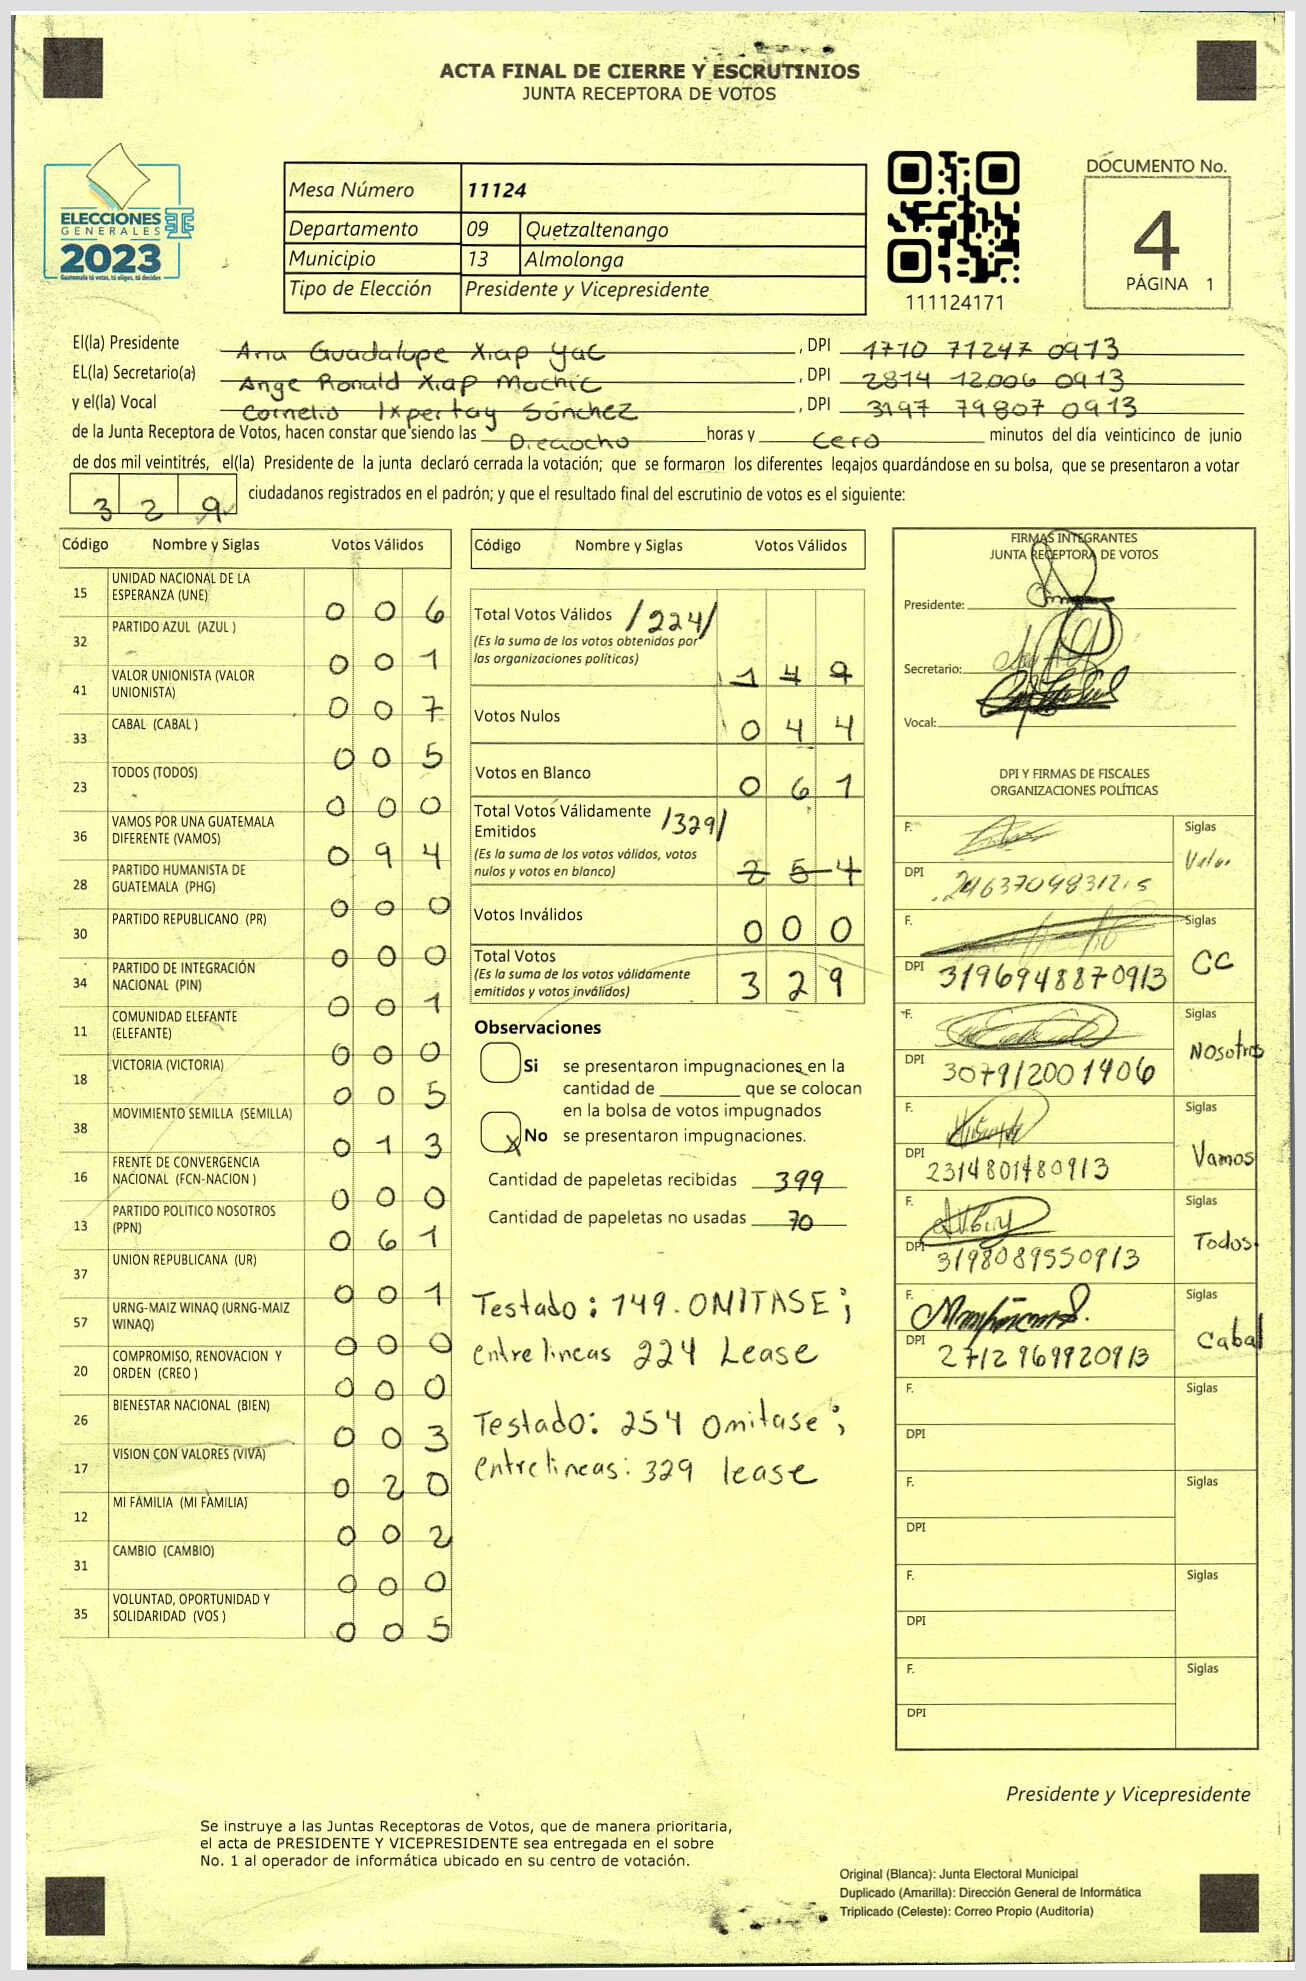 ACTA FINAL DE CIERRE Y ESCRUTINIOS
JUNTA RECEPTORA DE VOTOS
ELECCIONES
GENERALES
2023
Guatemala tú votas, tú eliges, tú decides
Mesa Número 11124
Departamento 09 Quetzaltenango
Municipio 13 Almolonga
Tipo de Elección Presidente y Vicepresidente
111124171
DOCUMENTO No.
4
PÁGINA 1
El(la) Presidente Ana Guadalupe Xiap Yac, DPI 1710 71247 0913
EL(la) Secretario(a) Ange Ronald Xiap Machic, DPI 2814 12006 0913
y el(la) Vocal Cornelio Ixpertay Sánchez, DPI 3197 79807 0913
de la Junta Receptora de Votos, hacen constar que siendo las Dieciocho horas y Cero minutos del día veinticinco de junio
de dos mil veintitrés, el(la) Presidente de la junta declaró cerrada la votación; que se formaron los diferentes legajos guardándose en su bolsa, que se presentaron a votar
329 ciudadanos registrados en el padrón; y que el resultado final del escrutinio de votos es el siguiente:
Código Nombre y Siglas Votos Válidos
15 UNIDAD NACIONAL DE LA ESPERANZA (UNE) 006
32 PARTIDO AZUL (AZUL ) 001
41 VALOR UNIONISTA (VALOR UNIONISTA) 007
33 CABAL (CABAL ) 005
23 TODOS (TODOS) 000
36 VAMOS POR UNA GUATEMALA DIFERENTE (VAMOS) 094
28 PARTIDO HUMANISTA DE GUATEMALA (PHG) 000
30 PARTIDO REPUBLICANO (PR) 000
34 PARTIDO DE INTEGRACIÓN NACIONAL (PIN) 001
11 COMUNIDAD ELEFANTE (ELEFANTE) 000
18 VICTORIA (VICTORIA) 005
38 MOVIMIENTO SEMILLA (SEMILLA) 013
16 FRENTE DE CONVERGENCIA NACIONAL (FCN-NACION ) 000
13 PARTIDO POLITICO NOSOTROS (PPN) 061
37 UNION REPUBLICANA (UR) 001
57 URNG-MAIZ WINAQ (URNG-MAIZ WINAQ) 000
20 COMPROMISO, RENOVACION Y ORDEN (CREO ) 000
26 BIENESTAR NACIONAL (BIEN) 003
17 VISION CON VALORES (VIVA) 020
12 MI FAMILIA (MI FAMILIA) 002
31 CAMBIO (CAMBIO) 000
35 VOLUNTAD, OPORTUNIDAD Y SOLIDARIDAD (VOS ) 005
Código Nombre y Siglas Votos Válidos
Total Votos Válidos /224/
(Es la suma de los votos obtenidos por
las organizaciones políticas) 149
Votos Nulos 044
Votos en Blanco 061
Total Votos Válidamente
Emitidos /329/
(Es la suma de los votos válidos, votos
nulos y votos en blanco) 254
Votos Inválidos 000
Total Votos
(Es la suma de los votos válidamente
emitidos y votos inválidos) 329
Observaciones
Si se presentaron impugnaciones en la
cantidad de ________ que se colocan
en la bolsa de votos impugnados
X No se presentaron impugnaciones.
Cantidad de papeletas recibidas 399
Cantidad de papeletas no usadas 70
Testado: 149. OMITASE;
entre lineas 224 Lease
Testado: 254 Omitase;
entre lineas: 329 lease
FIRMAS INTEGRANTES
JUNTA RECEPTORA DE VOTOS
Presidente:
Secretario:
Vocal:
DPI Y FIRMAS DE FISCALES
ORGANIZACIONES POLÍTICAS
F. Siglas
DPI
F. Siglas CC
DPI 3196948870913
F. Siglas Nosotros
DPI 307912001406
F. Siglas Vamos
DPI 2314801480913
F. Siglas Todos
DPI 3198089550913
F. Siglas Cabal
DPI 2712969920913
F. Siglas
DPI
F. Siglas
DPI
F. Siglas
DPI
F. Siglas
DPI
Presidente y Vicepresidente
Se instruye a las Juntas Receptoras de Votos, que de manera prioritaria,
el acta de PRESIDENTE Y VICEPRESIDENTE sea entregada en el sobre
No. 1 al operador de informática ubicado en su centro de votación.
Original (Blanca): Junta Electoral Municipal
Duplicado (Amarilla): Dirección General de Informática
Triplicado (Celeste): Correo Propio (Auditoría)